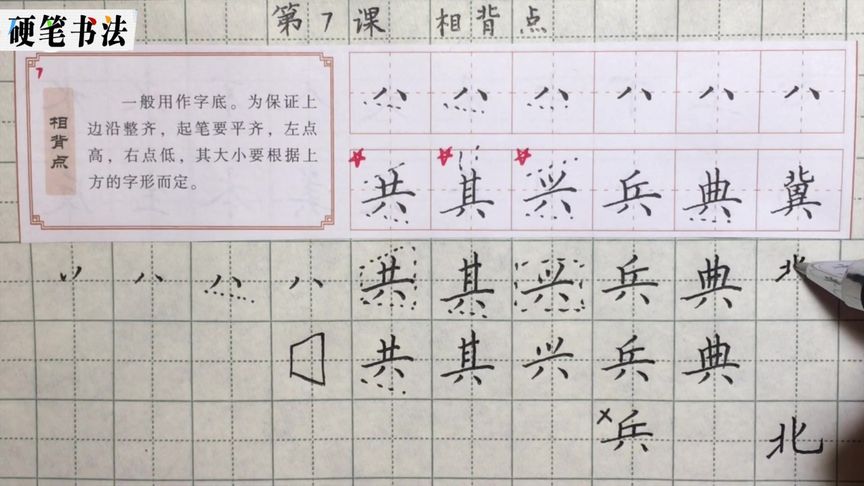 硬笔书法
第7课 相背点
7
相背点
一般用作字底。为保证上
边沿整齐，起笔要平齐，左点
高，右点低，其大小要根据上
方的字形而定。
八 八 八 八 八 八
共 其 兴 兵 典 冀
共 其 兴 兵 典 北
共 其 兴 兵 典
×兵 北